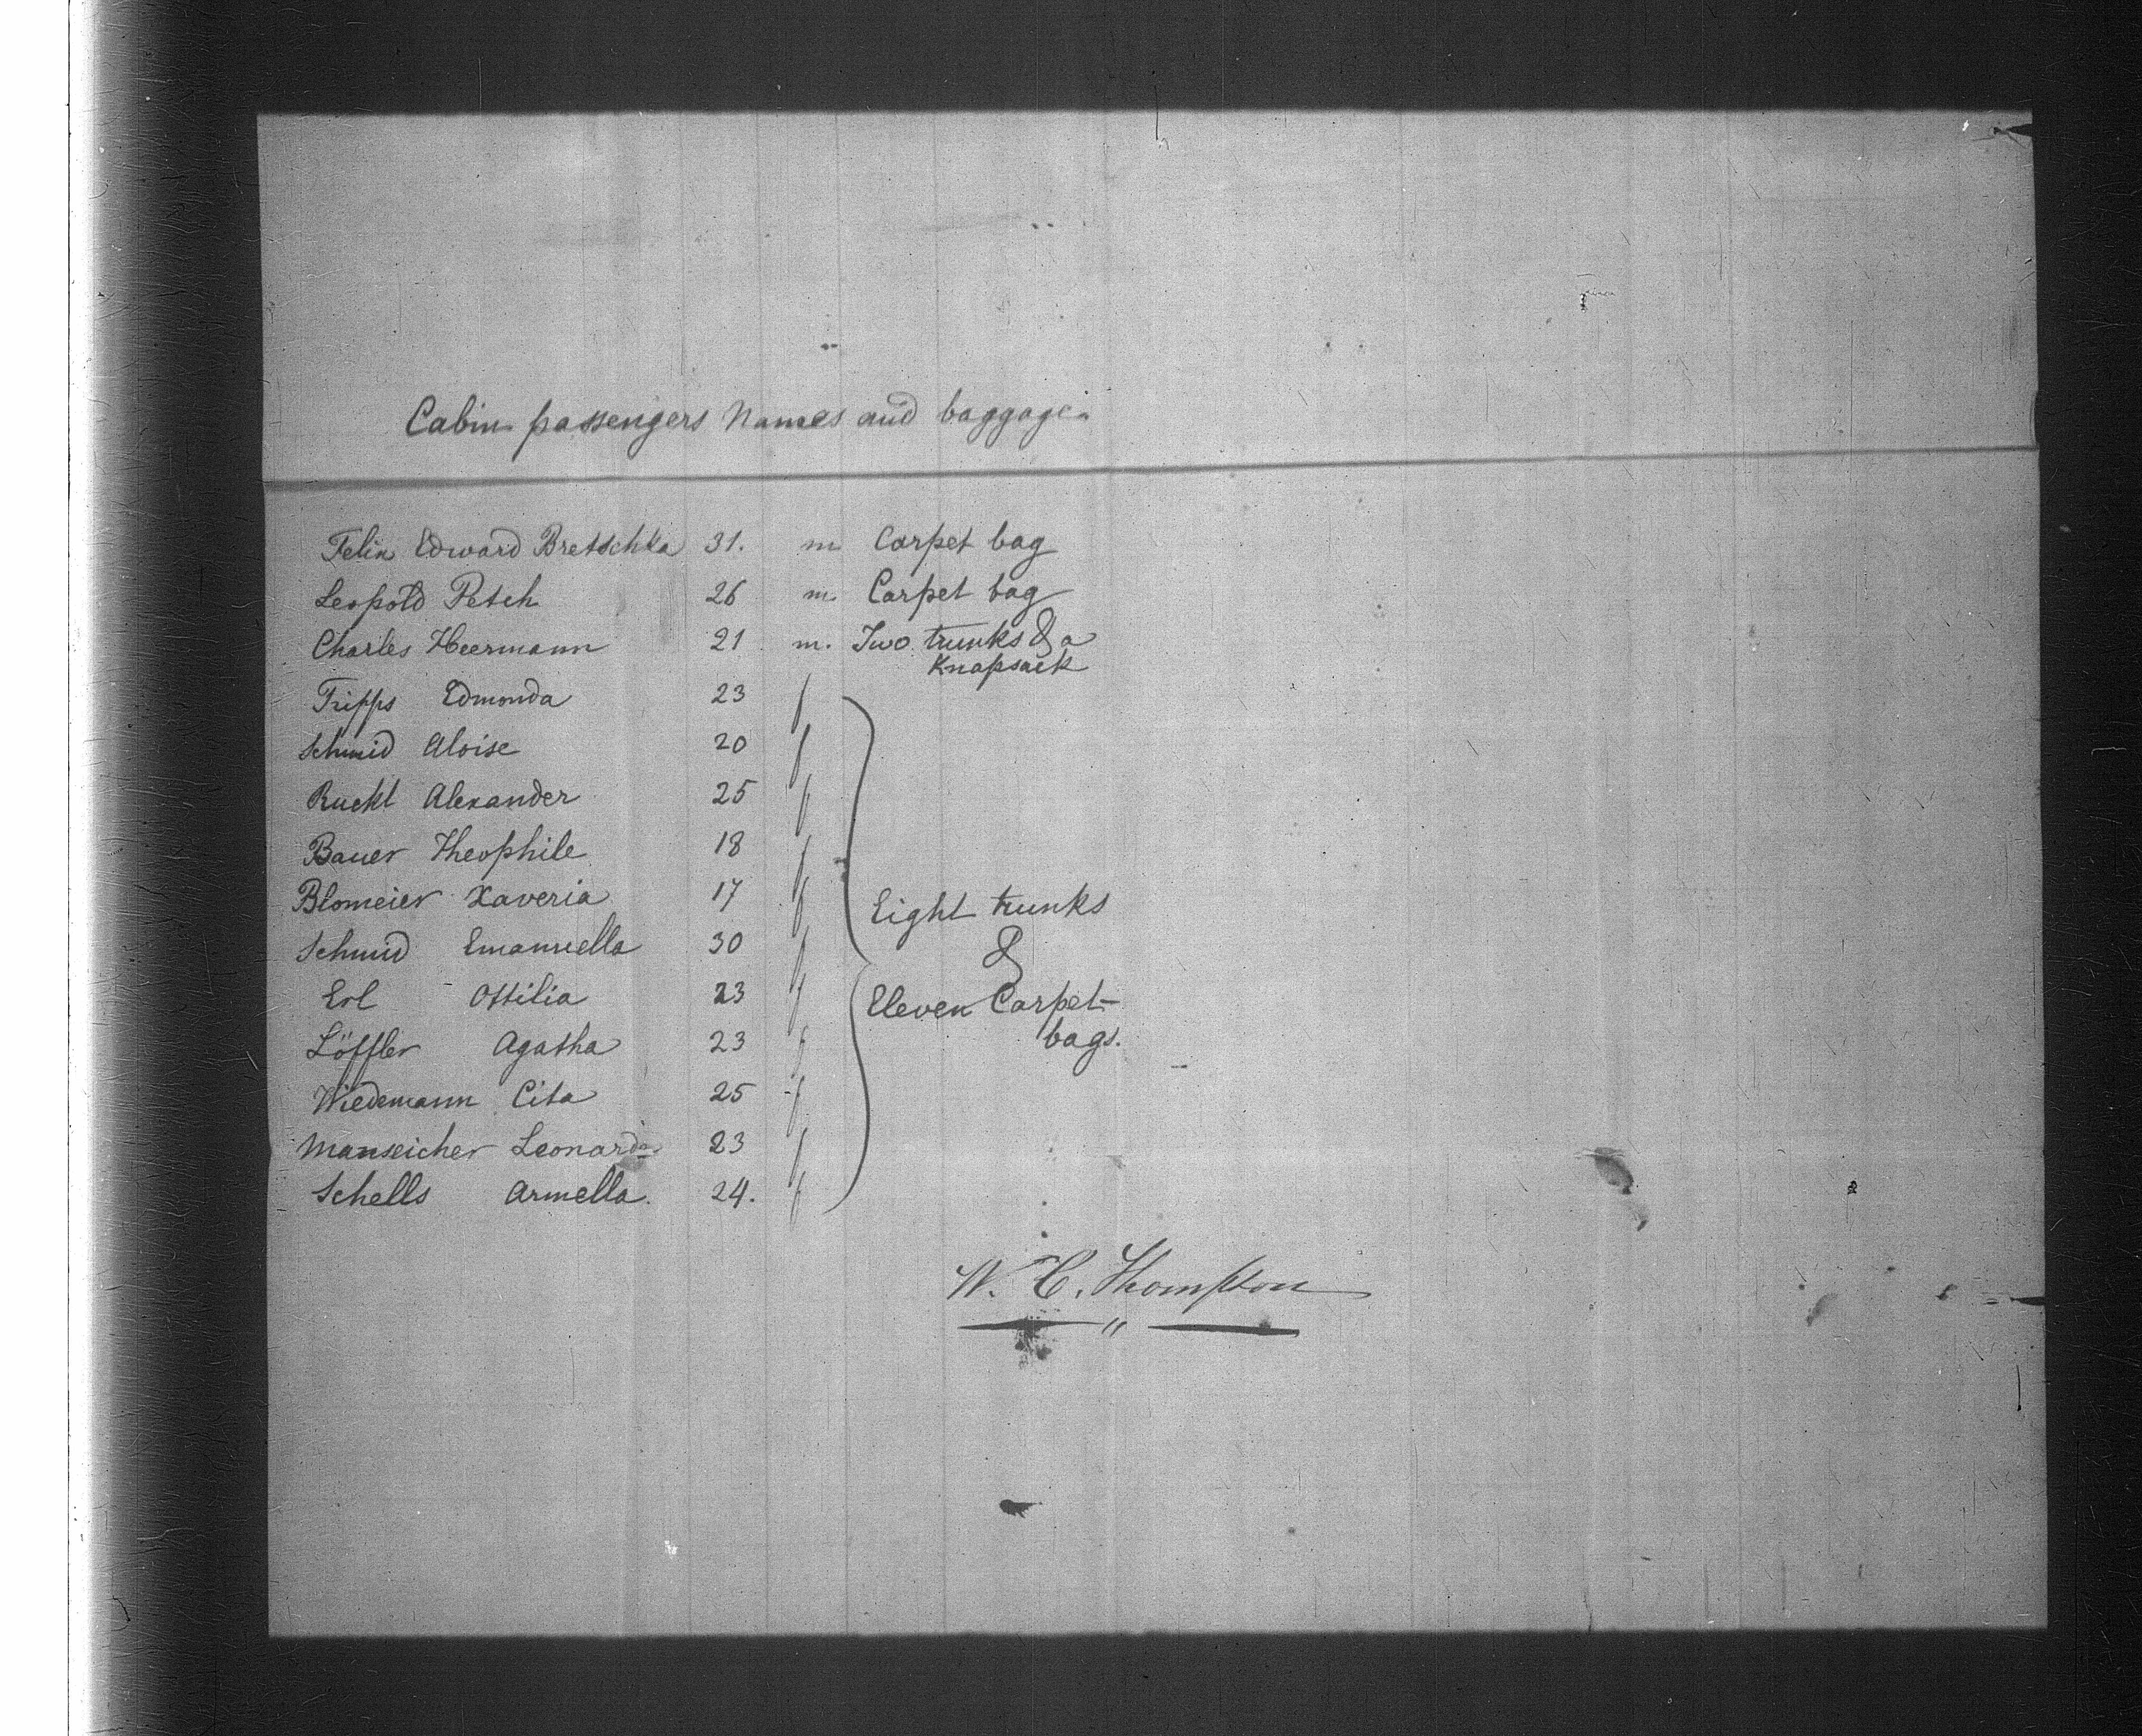 Cabin passengers Names and baggage.
Felix Edward Bretschka 31. m Carpet bag
Leopold Petch 26 m. Carpet bag
Charles Heermann 21 m. Two trunks & a
Knapsack
Tripps Edmonda 23 f
Schmid Aloise 20 f
Ruckl Alexander 25 f
Bauer Theophile 18 f
Blomeier Xaveria 17 f
Eight trunks
Schmid Emanuella 30 f
&
Erl Ottilia 23 f
Eleven Carpet-
Löffler Agatha 23 f
bags.
Wiedemann Cita 25 f
Manseicher Leonarda 23 f
Schells Armella. 24. f
W. C. Thompson
"